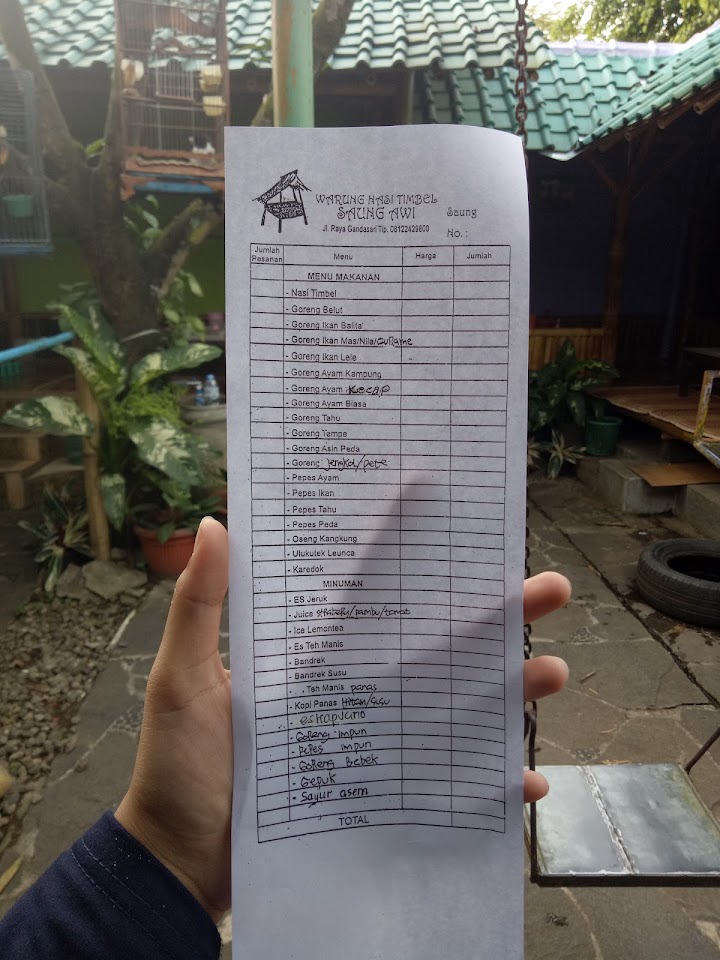 WARUNG NASI TIMBEL
SAUNG AWI
Jl. Raya Gandasari Tlp. 08122429800
Saung
No. :
Jumlah Pesanan Menu Harga Jumlah
MENU MAKANAN
- Nasi Timbel
- Goreng Belut
- Goreng Ikan Balita
- Goreng Ikan Mas/Nila/Gurame
- Goreng Ikan Lele
- Goreng Ayam Kampung
- Goreng Ayam Kecap
- Goreng Ayam Biasa
- Goreng Tahu
- Goreng Tempe
- Goreng Asin Peda
- Goreng jengkol/pete
- Pepes Ayam
- Pepes Ikan
- Pepes Tahu
- Pepes Peda
- Oseng Kangkung
- Ulukutek Leunca
- Karedok
MINUMAN
- ES Jeruk
- Juice /jambu/tomat
- Ice Lemontea
- Es Teh Manis
- Bandrek
- Bandrek Susu
- Teh Manis panas
- Kopi Panas Hitam/Susu
-
- Goreng impun
- Pepes impun
- Goreng Bebek
- Gepuk
- Sayur asem
TOTAL